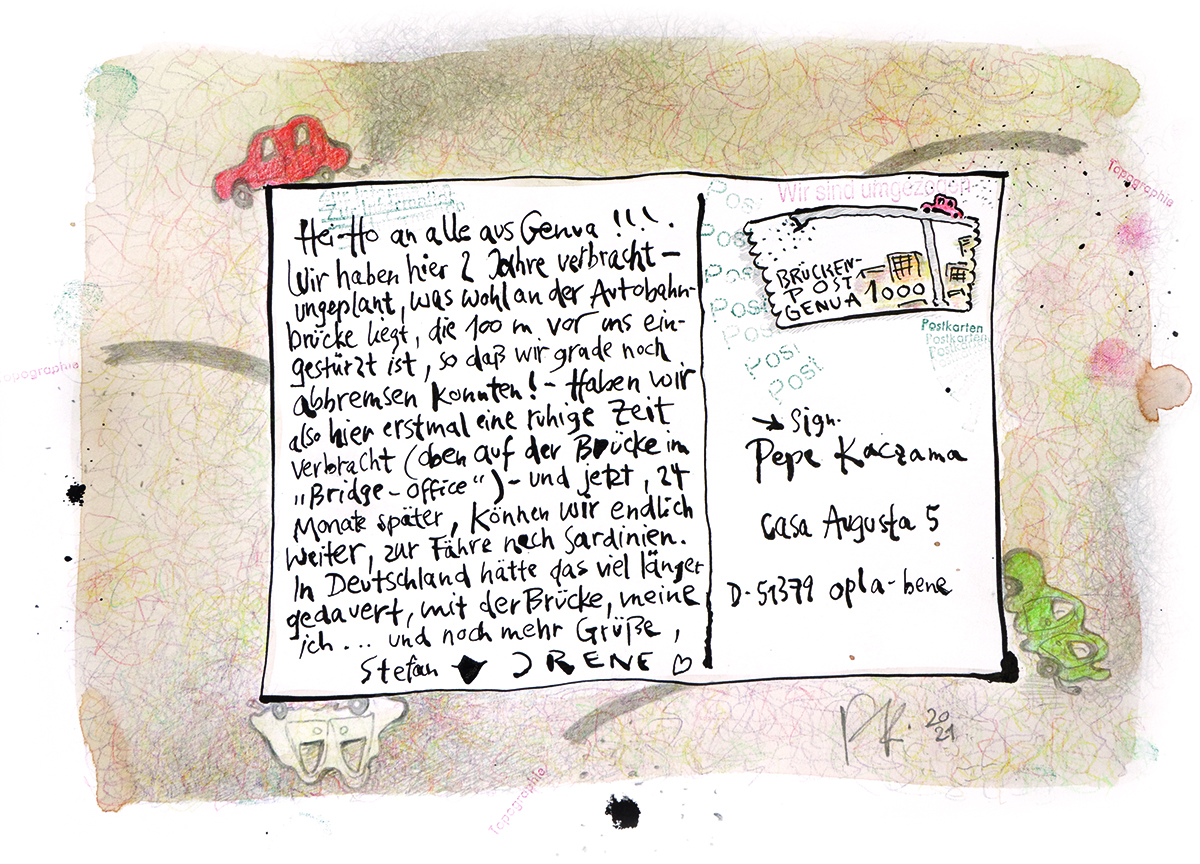 Zur Information
Zur Information
Hei-Ho an alle aus Genua !!!
Wir haben hier 2 Jahre verbracht –
ungeplant, was wohl an der Autobahn-
brücke liegt, die 100 m vor uns ein-
gestürzt ist, so daß wir grade noch
abbremsen konnten! – Haben wir
also hier erstmal eine ruhige Zeit
verbracht (oben auf der Brücke im
"Bridge-office") – und jetzt, 24
Monate später, können wir endlich
weiter, zur Fähre nach Sardinien.
In Deutschland hätte das viel länger
gedauert, mit der Brücke, meine
ich... und noch mehr Grüße,
Stefan IRENE
Wir sind umgezogen
Post
Post
Post
Post
Post
Post
Post
BRÜCKEN-
POST
GENUA 1000
Postkarten
Postkarten
Postkarten
→ Sign.
Pepe Kaczama
casa Augusta 5
D-51379 opla-bene
Topographie
Topographie
Topographie
PK. 20
21